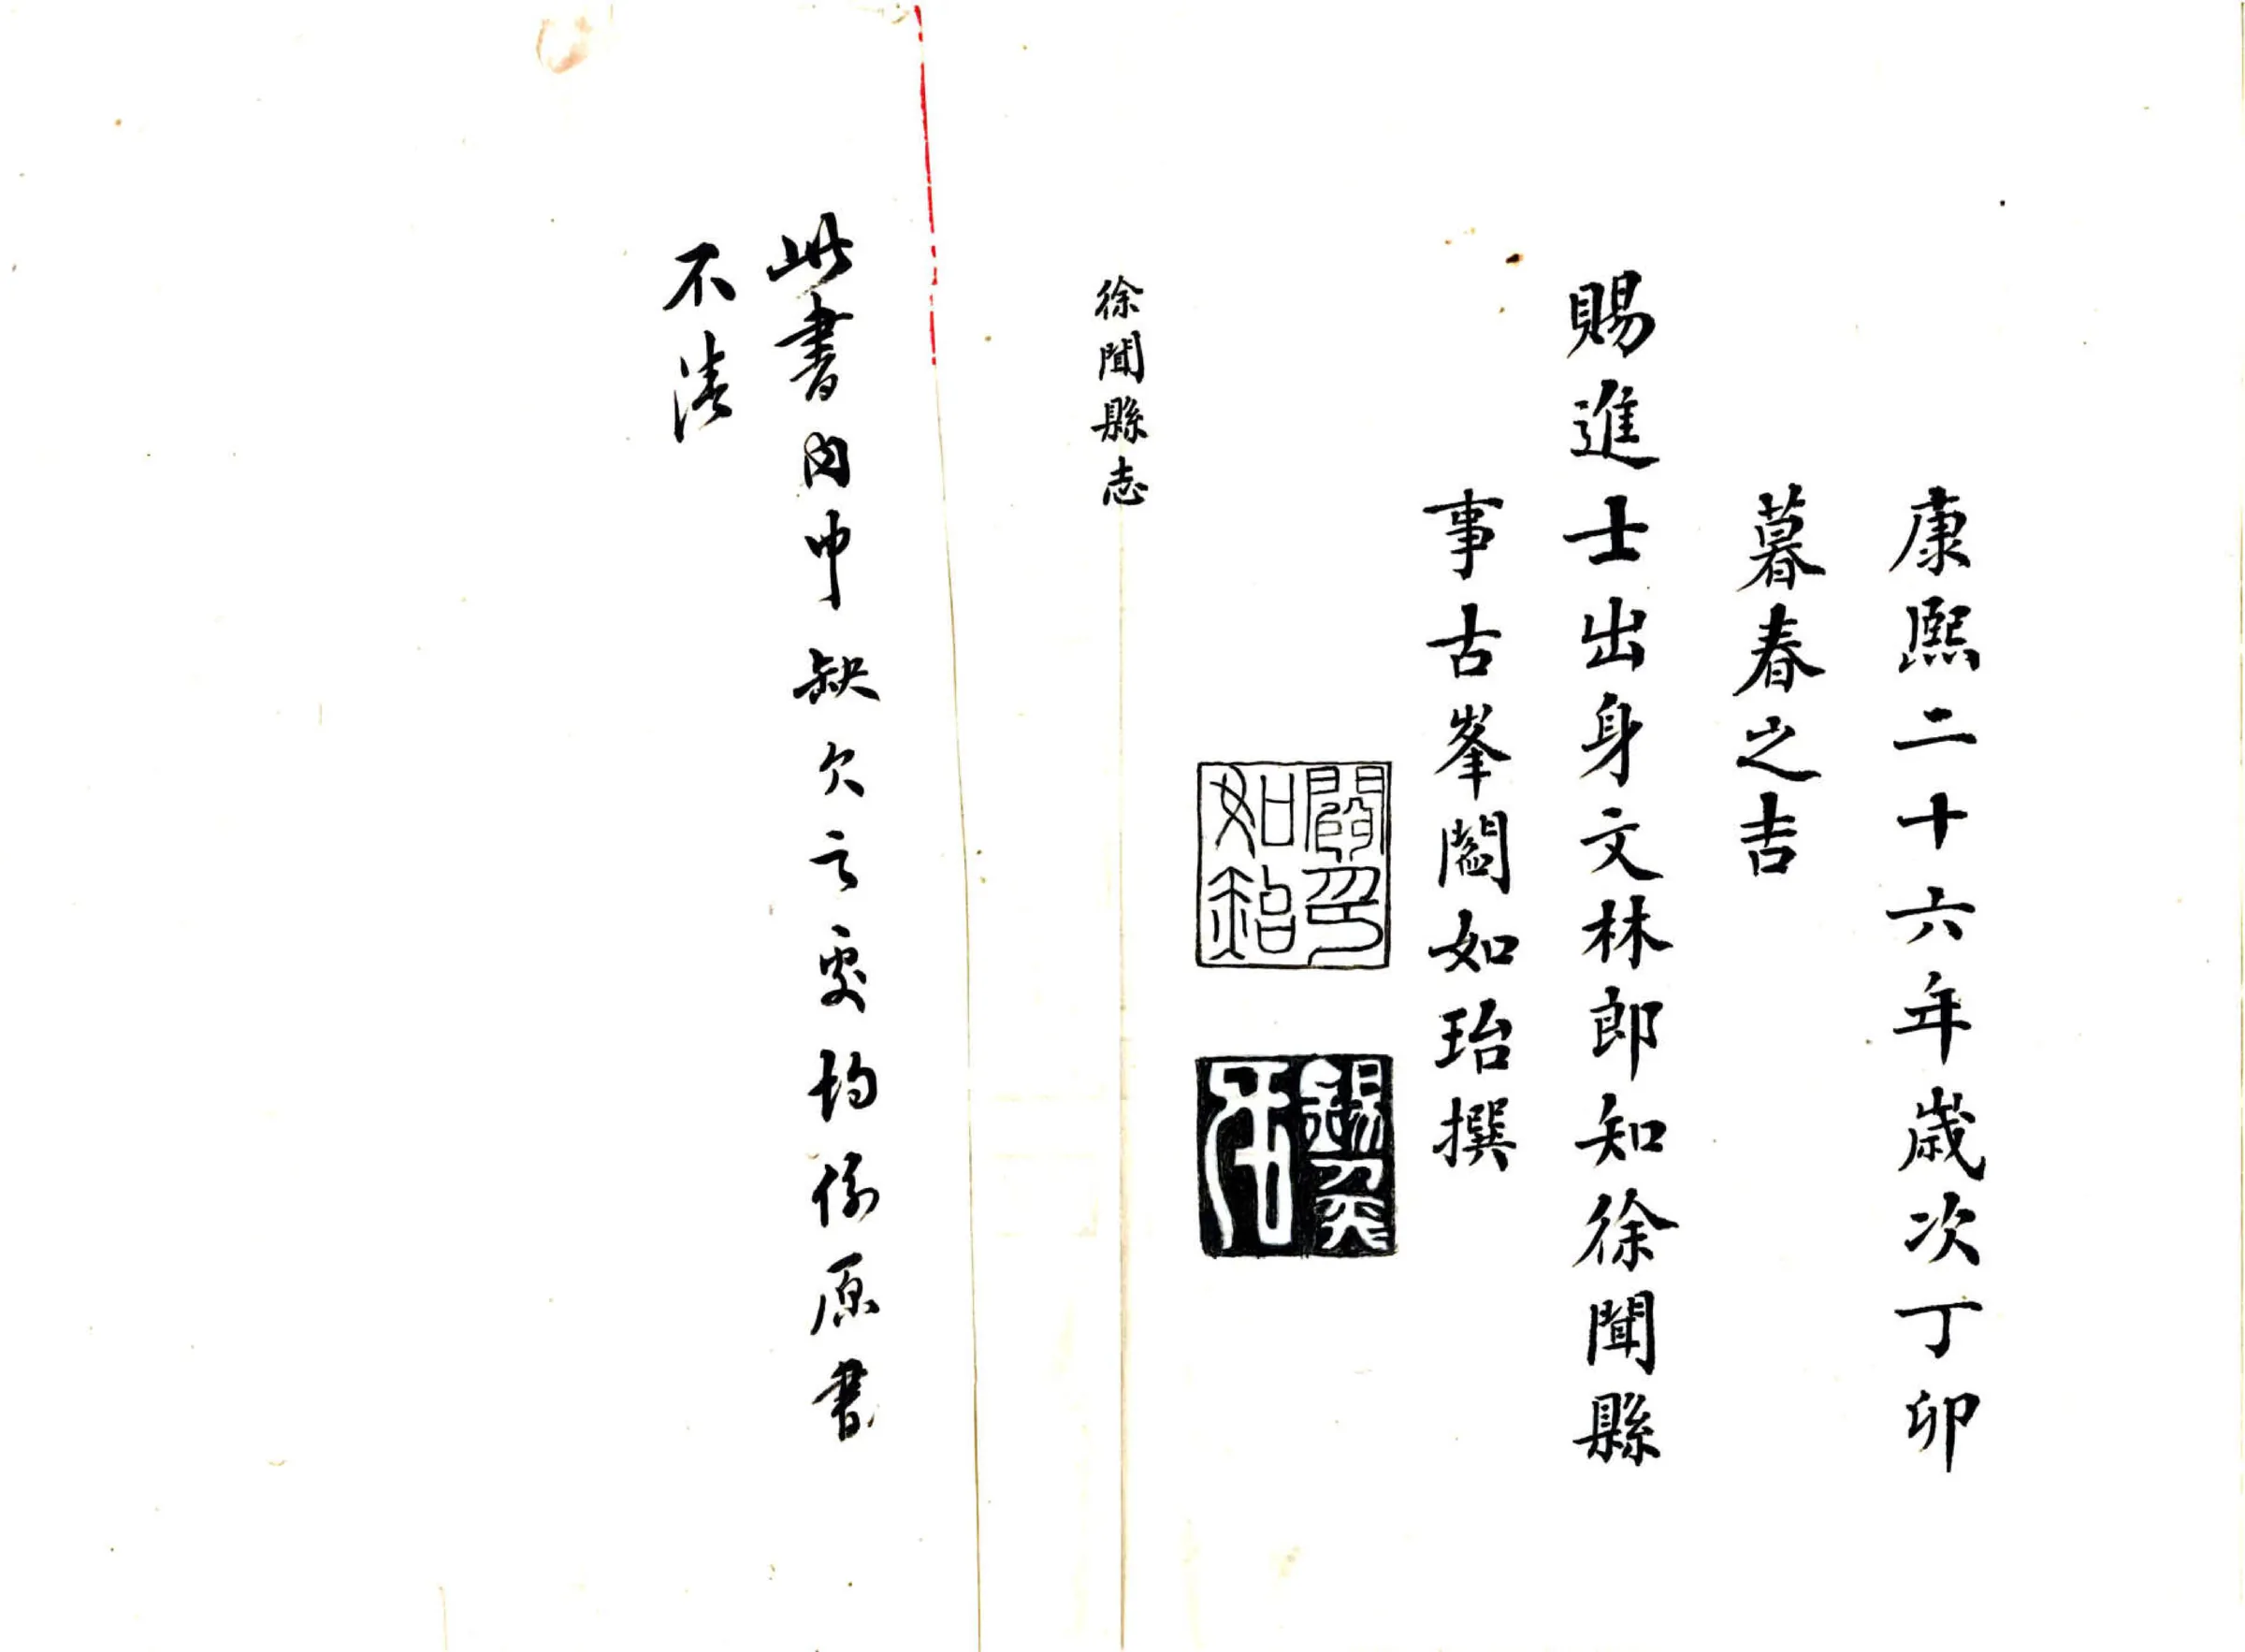 康熙二十六年嵗次丁卯
暮春之吉
賜進士出身文林郎知徐聞縣
事古峯閻如珆撰
閻印如珆
徐聞縣志
此書内中缺欠之處均係原書
不清